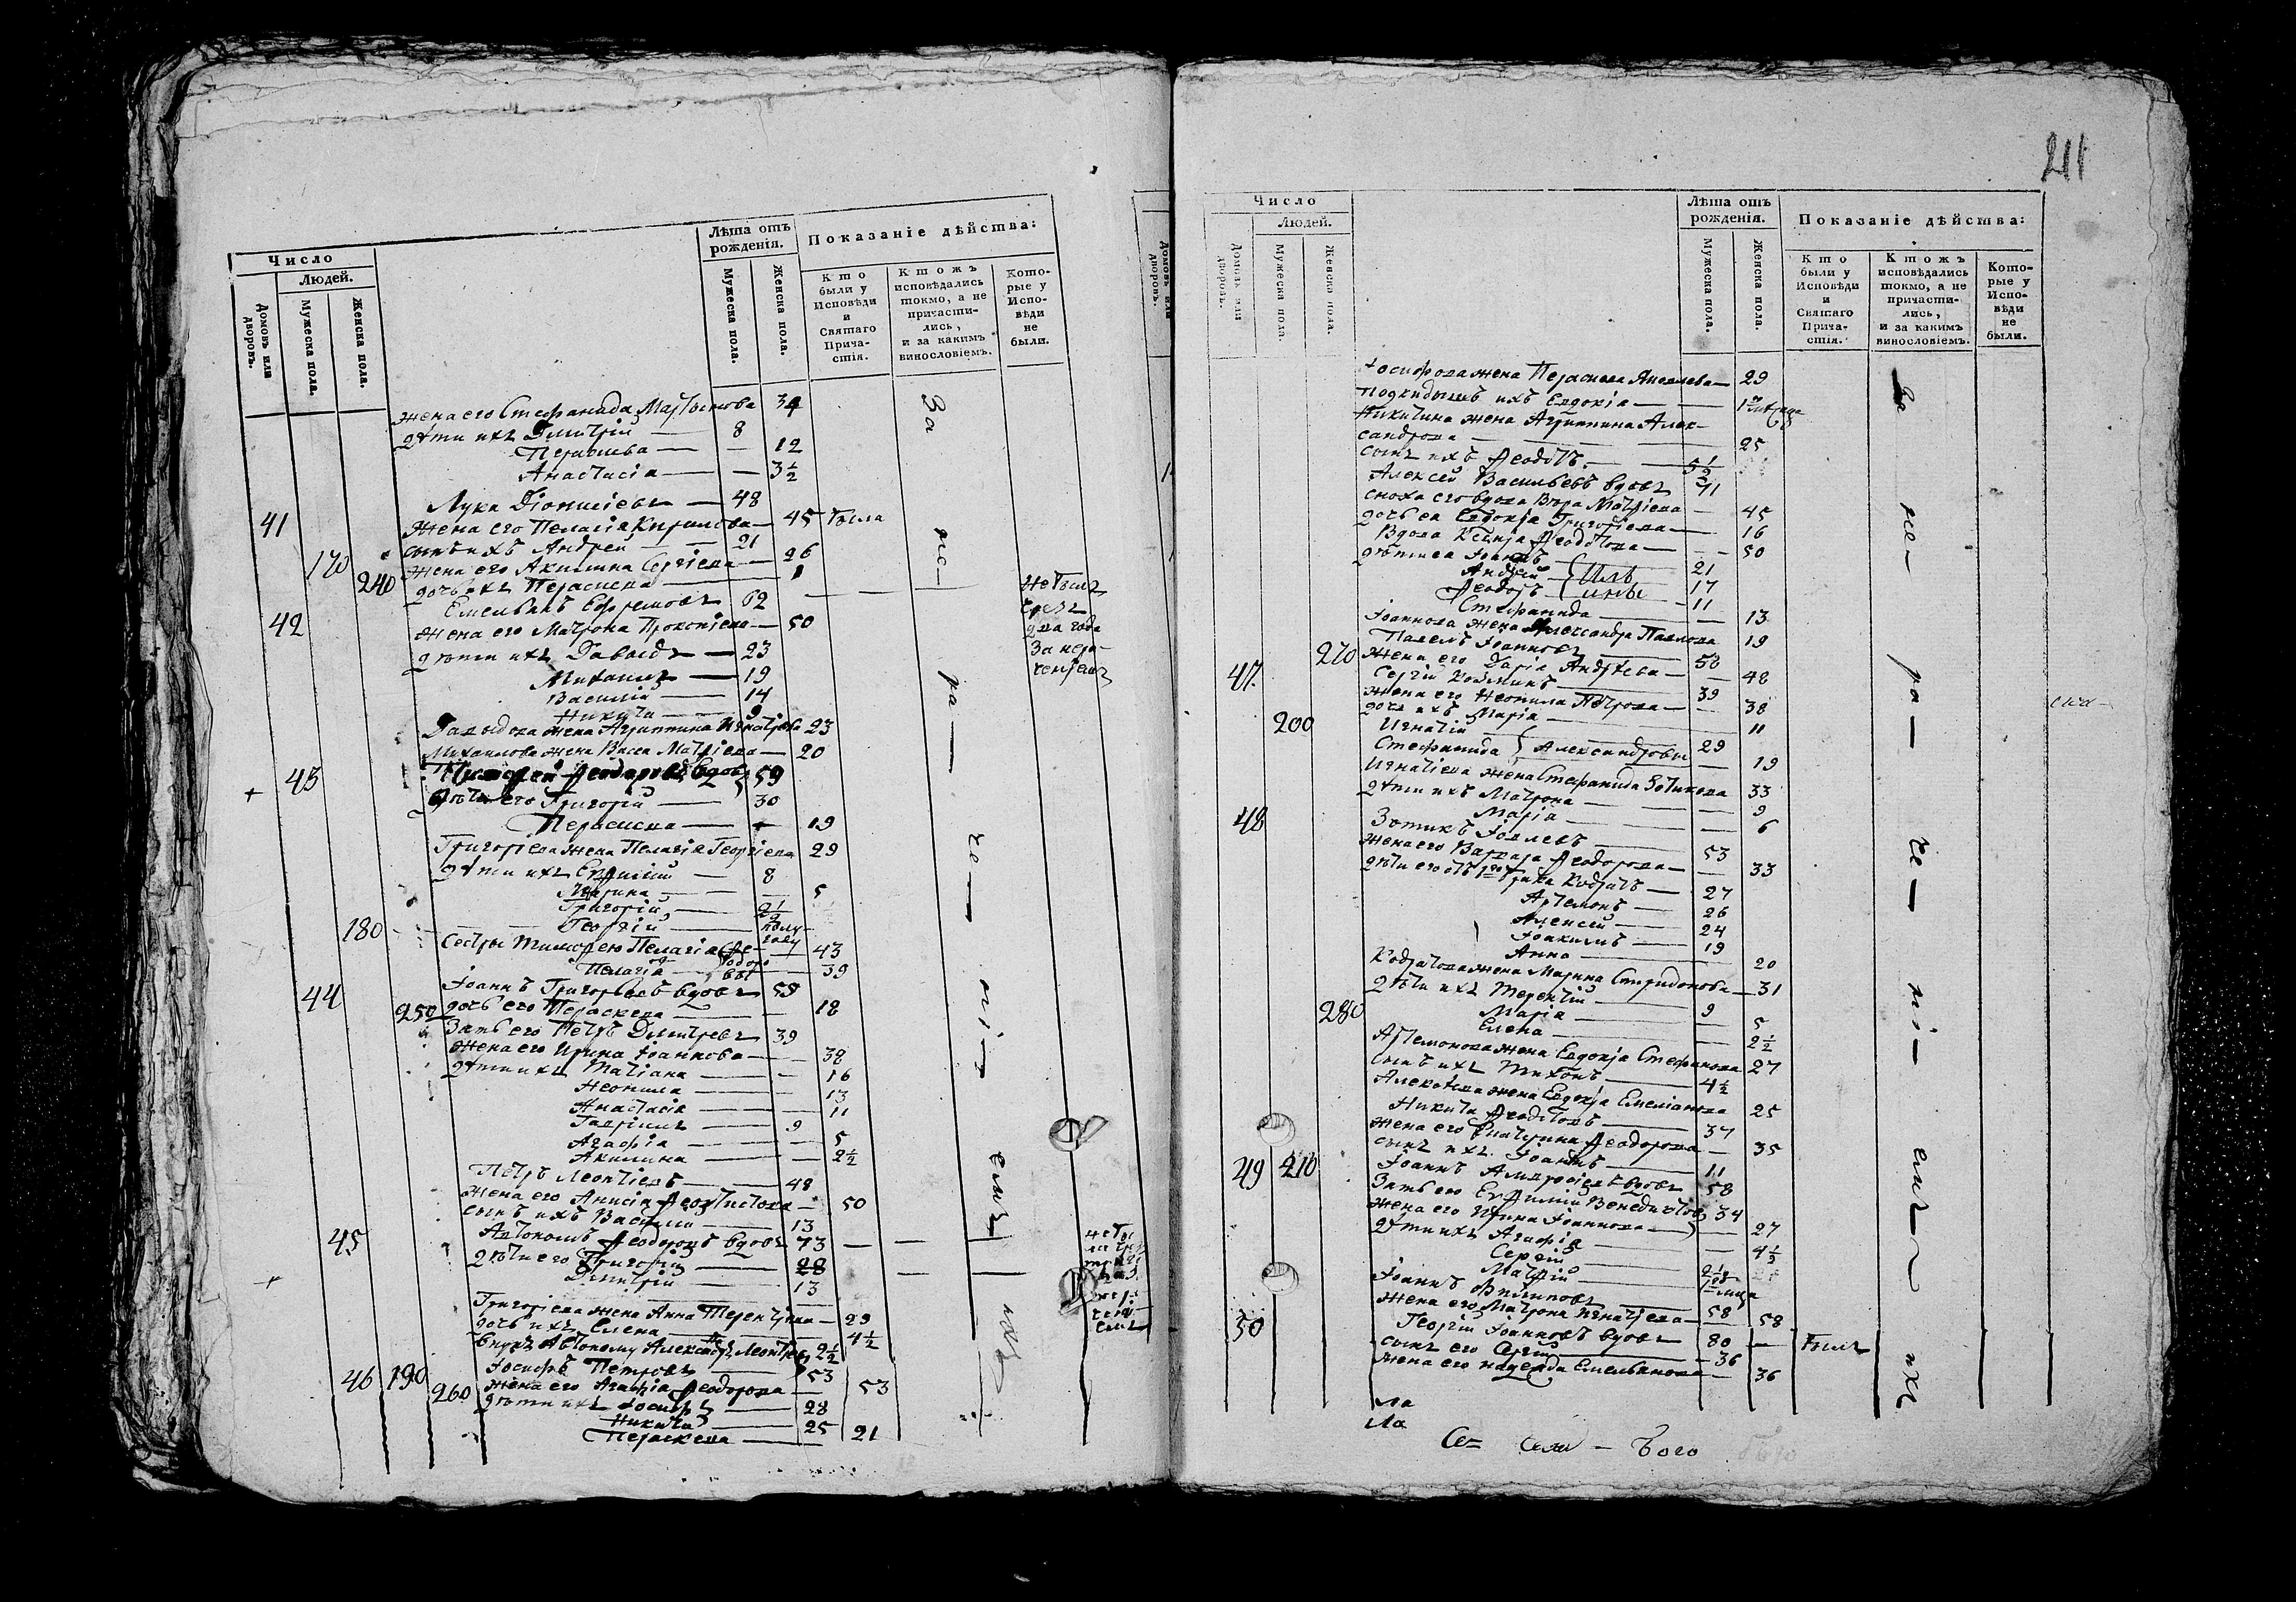 Число
Людей.
Домовъ или дворовъ.
Мужеска пола.
Женска пола.
Лѣта отъ рожденія.
Мужеска пола.
Женска пола.
Показаніе дѣйства:
Кто были у Исповѣди и Святаго Прича-стія.
Ктожъ исповѣдались токмо, а не причасти-лись, и за какимъ винословіемъ.
Кото-рые у Испо-вѣди не были.
жена его Стефанида Мартынова 34
дѣти ихъ Димитрій — 8
Параскева — — 12
Анастасія — — 3½
41 Лука Діонисіевъ — 48
жена его Пелагія Кирилова — 45 была
сынъ ихъ Андрей — 21
170 жена его Акилина Сергіева — 26
240 дочь ихъ Параскева — 1
42 Емельянъ Ефремовъ 62 не былъ
жена его Матрона Прокопіева — 50 два года
дѣти ихъ Давыдъ — 23 за нера-
Михаилъ — 19
Василій — 14
Никита — 9
Давыдова жена Агрипина Игнатіева 23
Михаилова жена Васса Матфіева — 20
43 Тимофей Феодоровъ вдовъ 59
дѣти его Григорій — 30
Параскева — — 19
Григоріева жена Пелагія Георгіева 29
дѣти ихъ Евфимій — 8
Марина — — 5
Григорій — 2½
180 Георгій — полу-году
Сестры Тимофею Пелагія Фе- 43
Пелагія — одоровы — 39
44 Іоаннъ Григорьевъ вдовъ 59
250 дочь его Параскева — — 18
Зять его Петръ Димитріевъ 39
жена его Ирина Іоаннова — 38
дѣти ихъ Татіана — — 16
Неонила — — 13
Анастасія — — 11
Гавріилъ — 9
Агафія — — 5
Акилина — — 2½
Петръ Леонтіевъ — 48
жена его Анисія Феоктистова — 50
сынъ ихъ Василій — 13
45 Автономъ Феодоровъ вдовъ 73
дѣти его Григорій — 28
Димитрій — 13
Григоріева жена Анна Терентіева — 29
дочь ихъ Елена — 4½
внукъ Автоному Александръ Леонтіевъ 2½
46 190 Іосифъ Петровъ — 53
260 жена его Агафія Феодорова — 53
дѣти ихъ Іосифъ — 28
Никита — 25
Параскева — 21
За не-ра-че-ні-емъ ихъ
211
Число
Людей.
Домовъ или дворовъ.
Мужеска пола.
Женска пола.
Лѣта отъ рожденія.
Мужеска пола.
Женска пола.
Показаніе дѣйства:
Кто были у Исповѣди и Святаго Прича-стія.
Ктожъ исповѣдались токмо, а не причасти-лись, и за какимъ винословіемъ.
Кото-рые у Испо-вѣди не были.
Іосифова жена Параскева Яковлева — 29
подкидышъ ихъ Евдокія — —
Никитина жена Агрипина Алек-
сандрова — 25
сынъ ихъ Феодотъ — 5½
Алексѣй Васильевъ вдовъ 71
сноха его вдова Вѣра Матфіева — 45
дочь ея Евдокія Григоріева — 16
Вдова Ксенія Феодотова — 50
дѣти ея Іоаннъ — 21
Андрей — 17
Феодоръ — 11
Стефанида — 13
Іоаннова жена Александра Павлова 19
270 Павелъ Іоанновъ — 50
47. жена его Дарія Андреева — 48
Сергій Козминъ — 39
жена его Неонила Петрова — 38
дочь ихъ Марія — 11
200 Игнатій — 29
Стефанида } Александровы — 19
Игнатіева жена Стефанида Зотикова 33
дѣти ихъ Матрона — 9
Марія — 6
48 Зотикъ Іовлевъ — 53
жена его Варвара Феодорова — 33
дѣти его отъ 1го брака Кодратъ — 27
Артемонъ — 26
Алексей — 24
Іоакимъ — 19
Анна — 20
Кодратова жена Марина Спиридонова — 31
дѣти ихъ Терентій — 9
280 Марія — 5
Елена — 2½
Артемонова жена Евдокія Стефанова 27
сынъ ихъ Тихонъ — 4½
Алексѣева жена Евдокія Емеліанова 25
Никита Феодотовъ — 37
жена его Екатерина Феодорова — 35
сынъ ихъ Іоаннъ — 11
49 210 Іоаннъ Амвросіевъ вдовъ 58
Зять его Евфимій Венедиктовъ 34
жена его Ирина Іоаннова — 27
дѣти ихъ Агафія — 4½
Сергій — 2½
Матфій —
Іоаннъ Филиповъ — 58
жена его Матрона Игнатіева — 58
50 Георгій Іоанновъ вдовъ 80 — былъ
сынъ его Сергій — 36
жена его Надежда Емельянова — 36
За не-ра-че-ні-емъ ихъ
ла
ла
Се= — бого